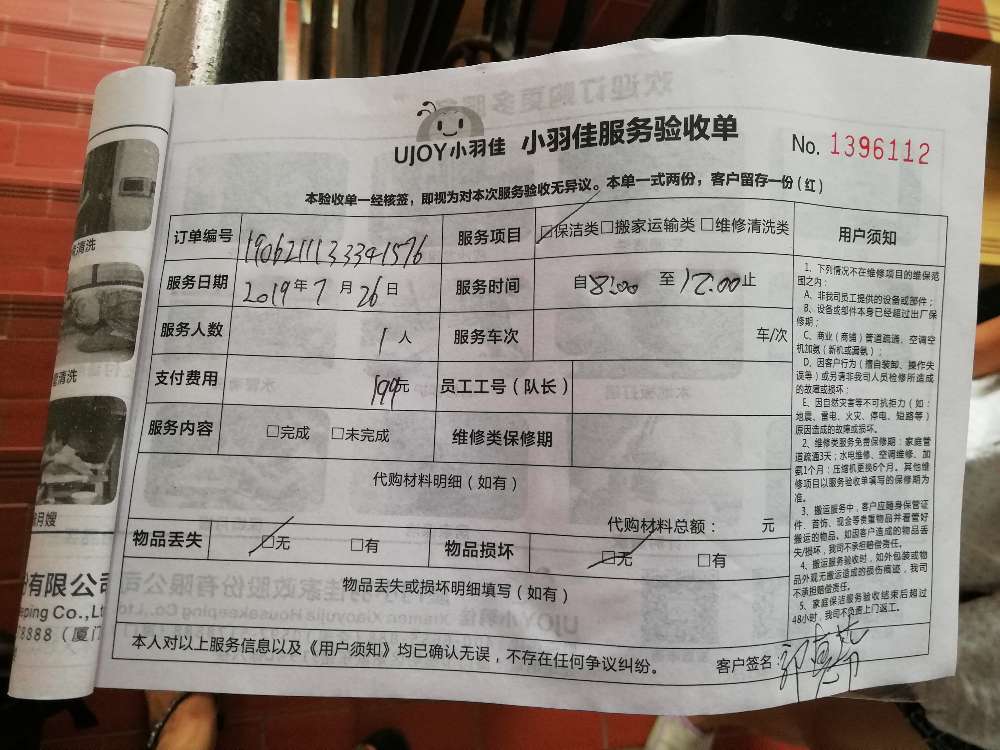 UJOY小羽佳 小羽佳服务验收单
No. 1396112
本验收单一经核签，即视为对本次服务验收无异议。本单一式两份，客户留存一份（红）
订单编号 1906211133341576 服务项目 ☑保洁类□搬家运输类□维修清洗类
服务日期 2019年7月26日 服务时间 自8:00 至12:00止
服务人数 1人 服务车次 车/次
支付费用 199元 员工工号（队长）
服务内容 □完成 □未完成 维修类保修期
代购材料明细（如有）
代购材料总额： 元
物品丢失 ☑无 □有 物品损坏 ☑无 □有
物品丢失或损坏明细填写（如有）
本人对以上服务信息以及《用户须知》均已确认无误，不存在任何争议纠纷。 客户签名：
用户须知
1、下列情况不在维修项目的维保范
围之内：
A、非我司员工提供的设备或部件；
B、设备或部件本身已经超过出厂保
修期；
C、商业（商铺）管道疏通、空调空
机加氨（新机或漏氨）；
D、因客户行为（擅自装卸、操作失
误等）或另请非我司人员检修所造成
的故障或损坏；
E、因自然灾害等不可抗拒力（如：
地震、雷电、火灾、停电、短路等）
原因造成的故障或损坏。
2、维修类服务免费保修期：家庭管
道疏通3天；水电维修、空调维修、加
氨1个月；压缩机更换6个月。其他维
修项目以服务验收单填写的保修期为
准。
3、搬运服务中，客户应随身保管证
件、首饰、现金等贵重物品并看管好
搬运的物品。如因客户造成的物品丢
失/损坏，我司不承担赔偿责任。
4、搬运服务验收时，如外包装或物
品外观无搬运造成的损伤痕迹，我司
不承担赔偿责任。
5、家庭保洁服务验收结束后超过
48小时，我司不负责上门返工。
清洗
清洗
月嫂
份有限公司
eping Co.,Lt
8888（厦门